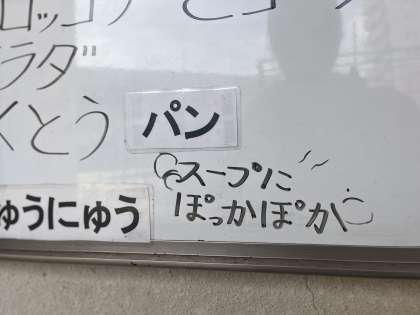 ロッコ
ラダ
くとう
パン
スープに
ぽっかぽか
ゅうにゅう